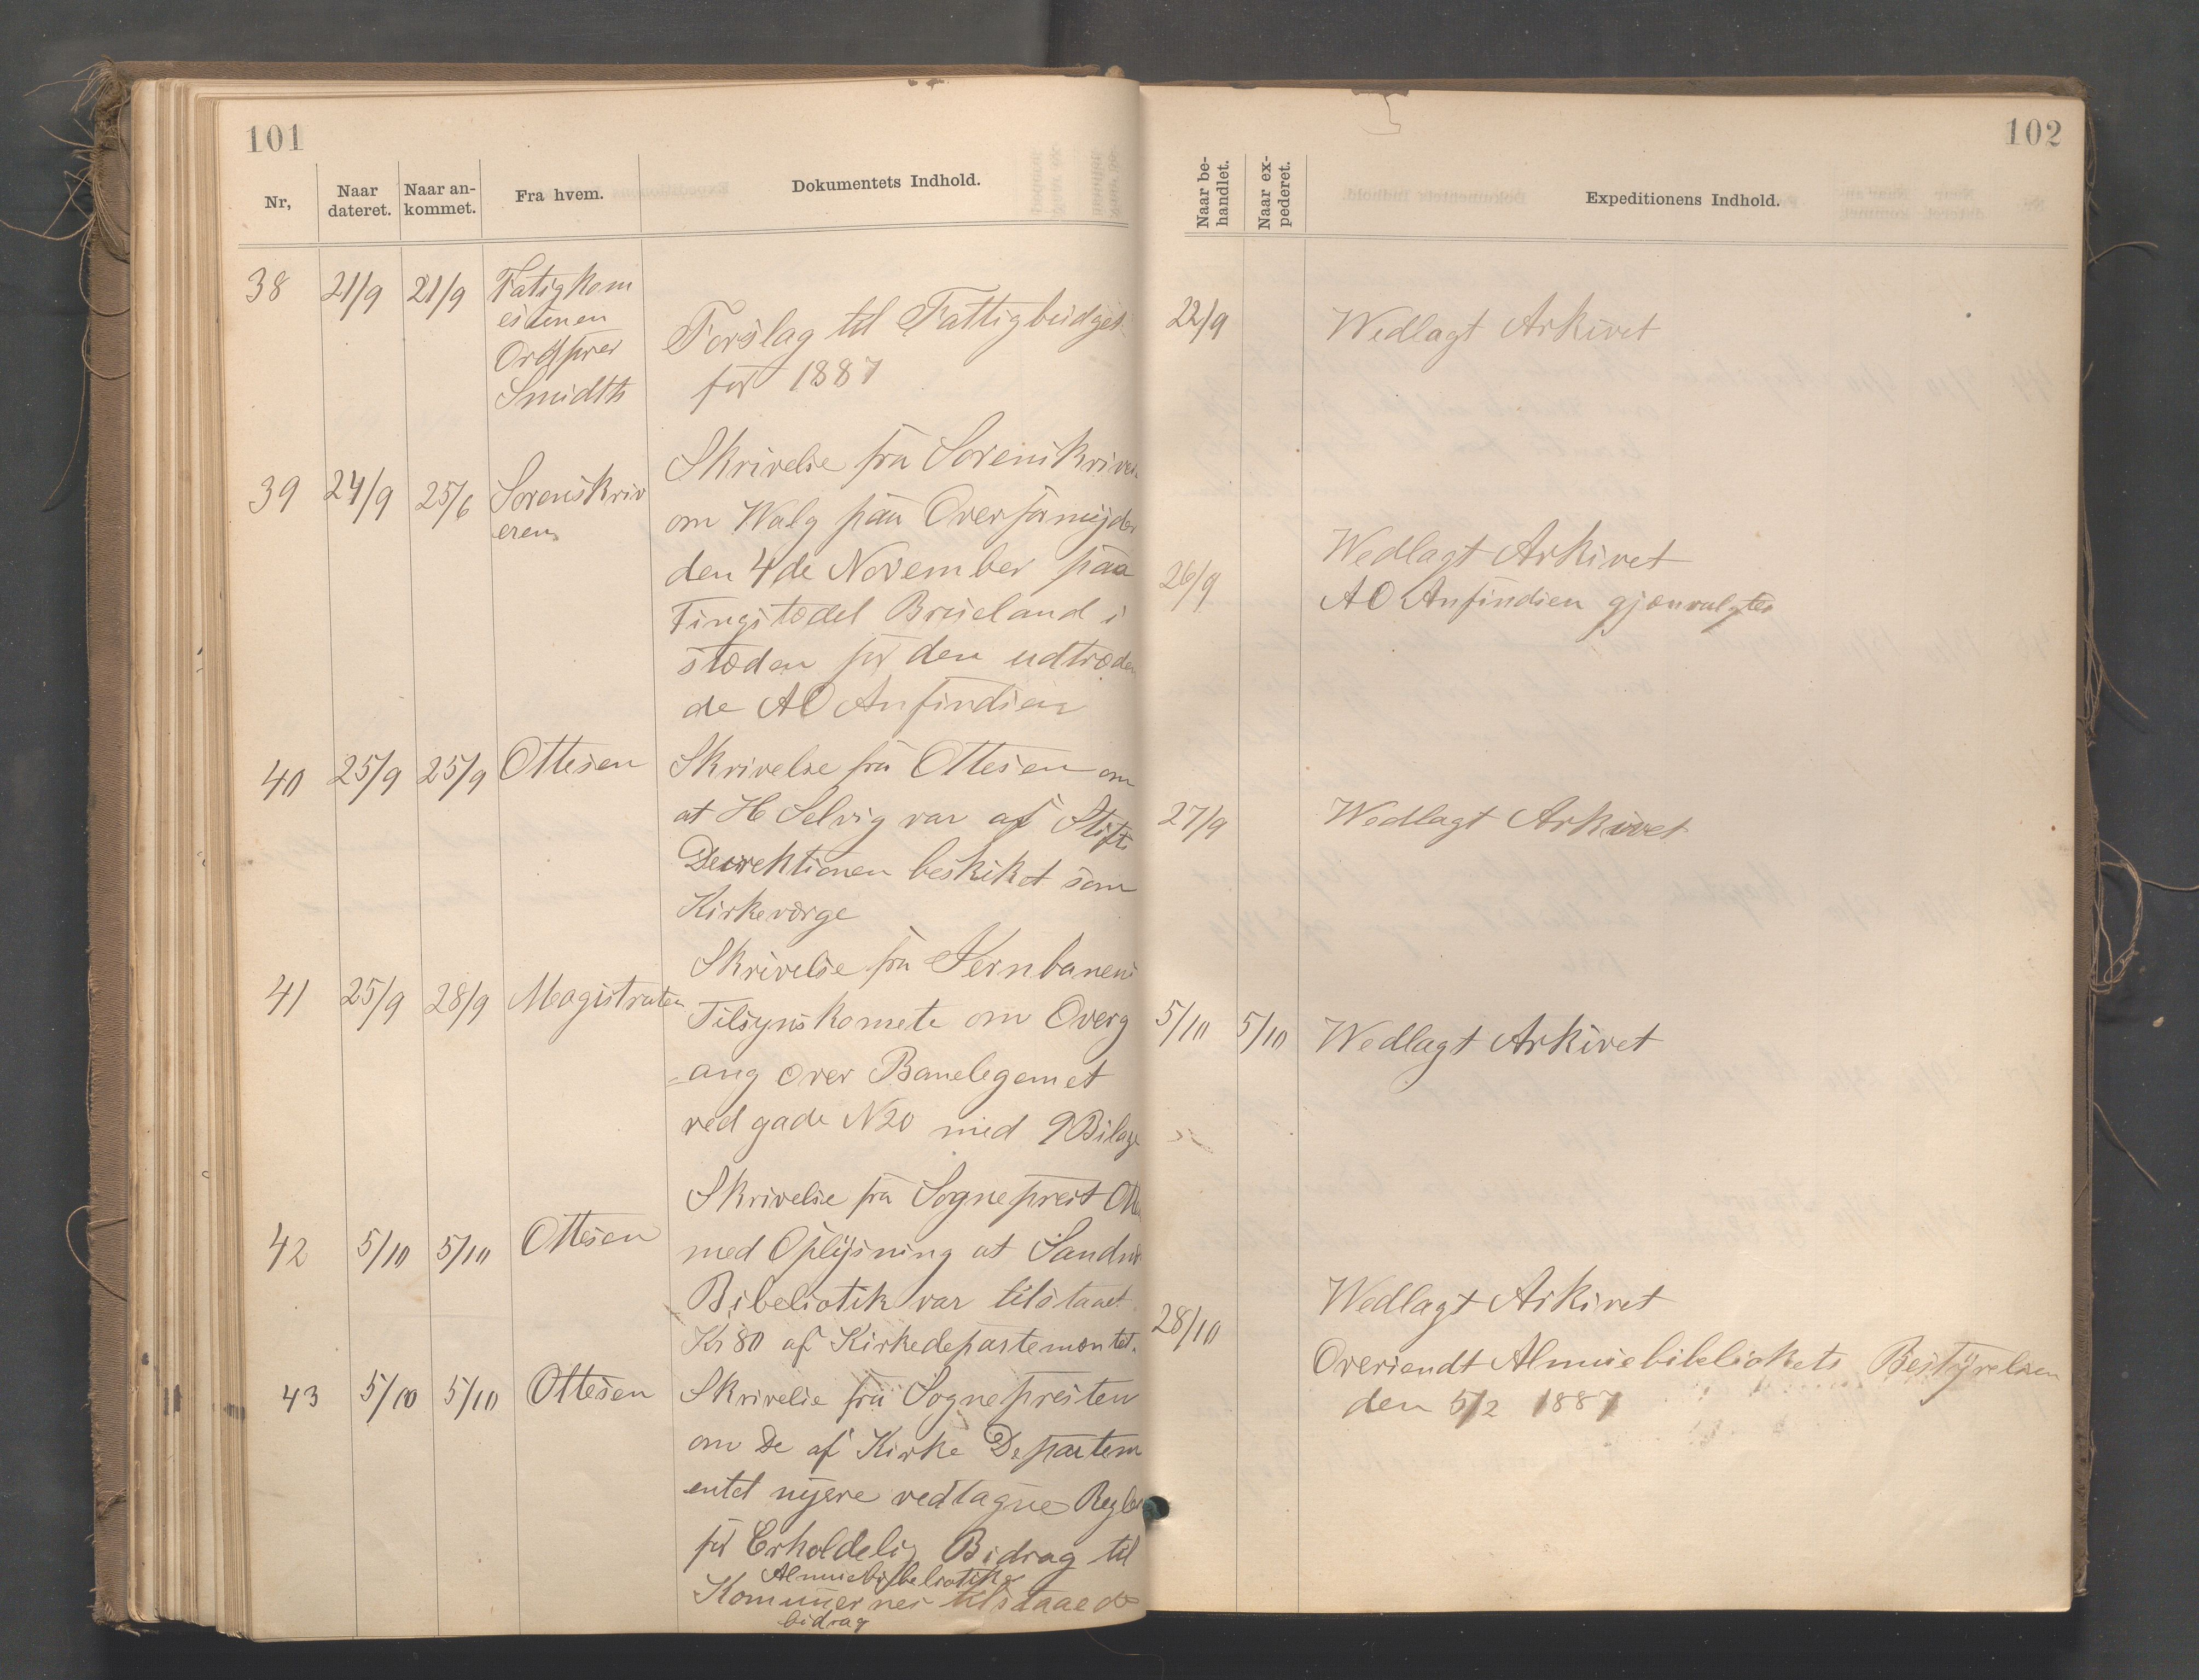 101
Nr,
Naar dateret.
Naar an- kommet.
Fra hvem.
Dokumentets Indhold.
38 21/9 21/9 Fatigkom
esionen
Ordfører
Smidth
Forslag til Fattigbudget
for 1887
39 24/9 25/6 Sorenskriv
eren
Skrivelse fra Sorenskriver
om Walg paa Overformynder
den 4de November paa
Tingstedet Brueland i
stæden for den udtræden
de AO Anfindsen
40 25/9 25/9 Ottesen
Skrivelse fra Ottesen om
at H Selvig var af Stifts
Derektionen beskiket som
Kirkeværge
41 25/9 28/9 Magistraten
Skrivelse fra Jernbanens
Tilsynskomete om Overg
=ang over Banelegemet
ved gade N20 med 9 Bilage
42 5/10 5/10 Ottesen
Skrivelse fra Sogneprest
med Oplysning at
Bibeliotik var tilstaaet
Kr 80 af Kirkedepartementet.
43 5/10 5/10 Ottesen
Skrivelse fra Sognepresten
om De af Kirke Departem
entet nyere vedtagne Regler
for Erholdelig Bidrag til
Almuebibeliotiker
Kommuernes tilstaaede
bidrag
102
Naar be- handlet.
Naar ex- pederet.
Expeditionens Indhold.
22/9 Wedlagt Arkivet
26/9 Wedlagt Arkivet
AO Anfindsen gjenvalgtes
27/9 Wedlagt Arkivet
5/10 5/10 Wedlagt Arkivet
28/10 Wedlagt Arkivet
Oversendt Almuebibeliokets Bestyrelsen
den 5/2 1887